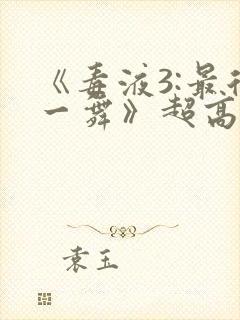 《毒液3:最
一舞》超高
袁玉